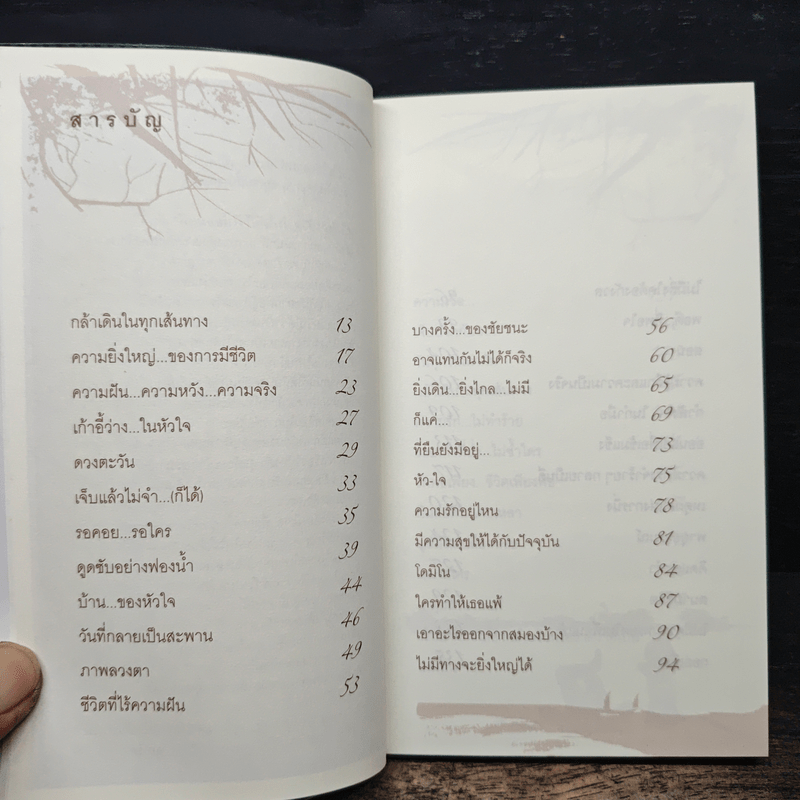 สารบัญ
กล้าเดินในทุกเส้นทาง 13
ความยิ่งใหญ่...ของการมีชีวิต 17
ความฝัน...ความหวัง...ความจริง 23
เก้าอี้ว่าง...ในหัวใจ 27
ดวงตะวัน 29
เจ็บแล้วไม่จำ...(ก็ได้) 33
รอคอย...รอใคร 35
ดูดซับอย่างฟองน้ำ 39
บ้าน...ของหัวใจ 44
วันที่กลายเป็นสะพาน 46
ภาพลวงตา 49
ชีวิตที่ไร้ความฝัน 53
บางครั้ง...ของชัยชนะ 56
อาจแทนกันไม่ได้ก็จริง 60
ยิ่งเดิน...ยิ่งไกล...ไม่มี 65
ก็แค่... 69
ที่ยืนยังมีอยู่... 73
หัว-ใจ 75
ความรักอยู่ไหน 78
มีความสุขให้ได้กับปัจจุบัน 81
โดมิโน 84
ใครทำให้เธอแพ้ 87
เอาอะไรออกจากสมองบ้าง 90
ไม่มีทางจะยิ่งใหญ่ได้ 94